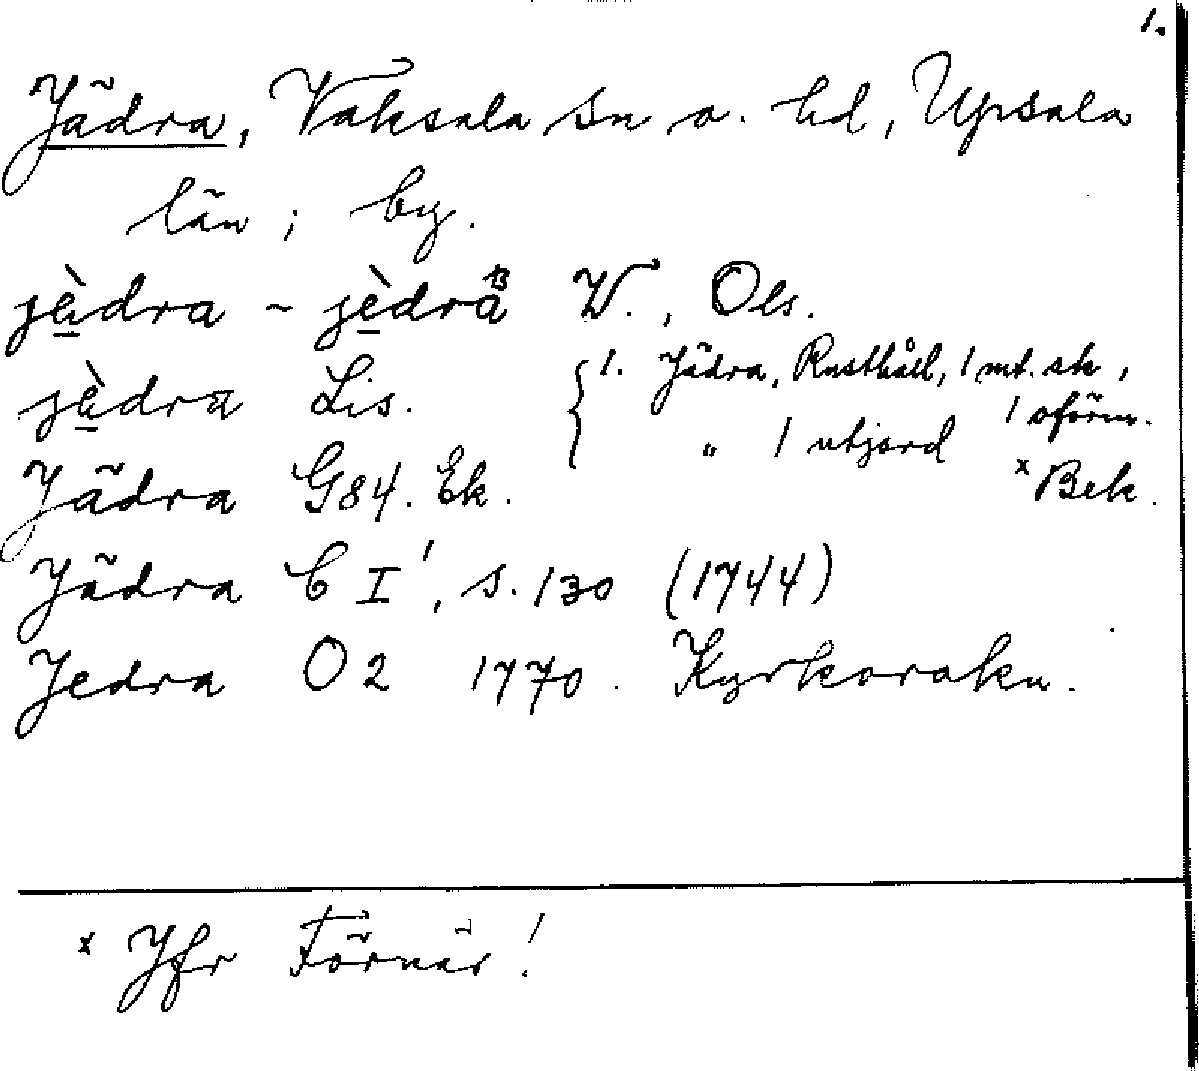 1.
Jädra, Vaksala sn o. hd, Upsala
län; by.
jàdra ~ jèdra W., Ols.
jàdra Lis. { 1. Jädra, Rusthåll, 1 mt. sk,
" 1 utjord 1 oförm.
Jädra G84. Ek. x Bek.
Jädra C I¹, s. 130 (1744)
Jedra O2 1770. Kyrkoräkn.
x Jfr Förnär!